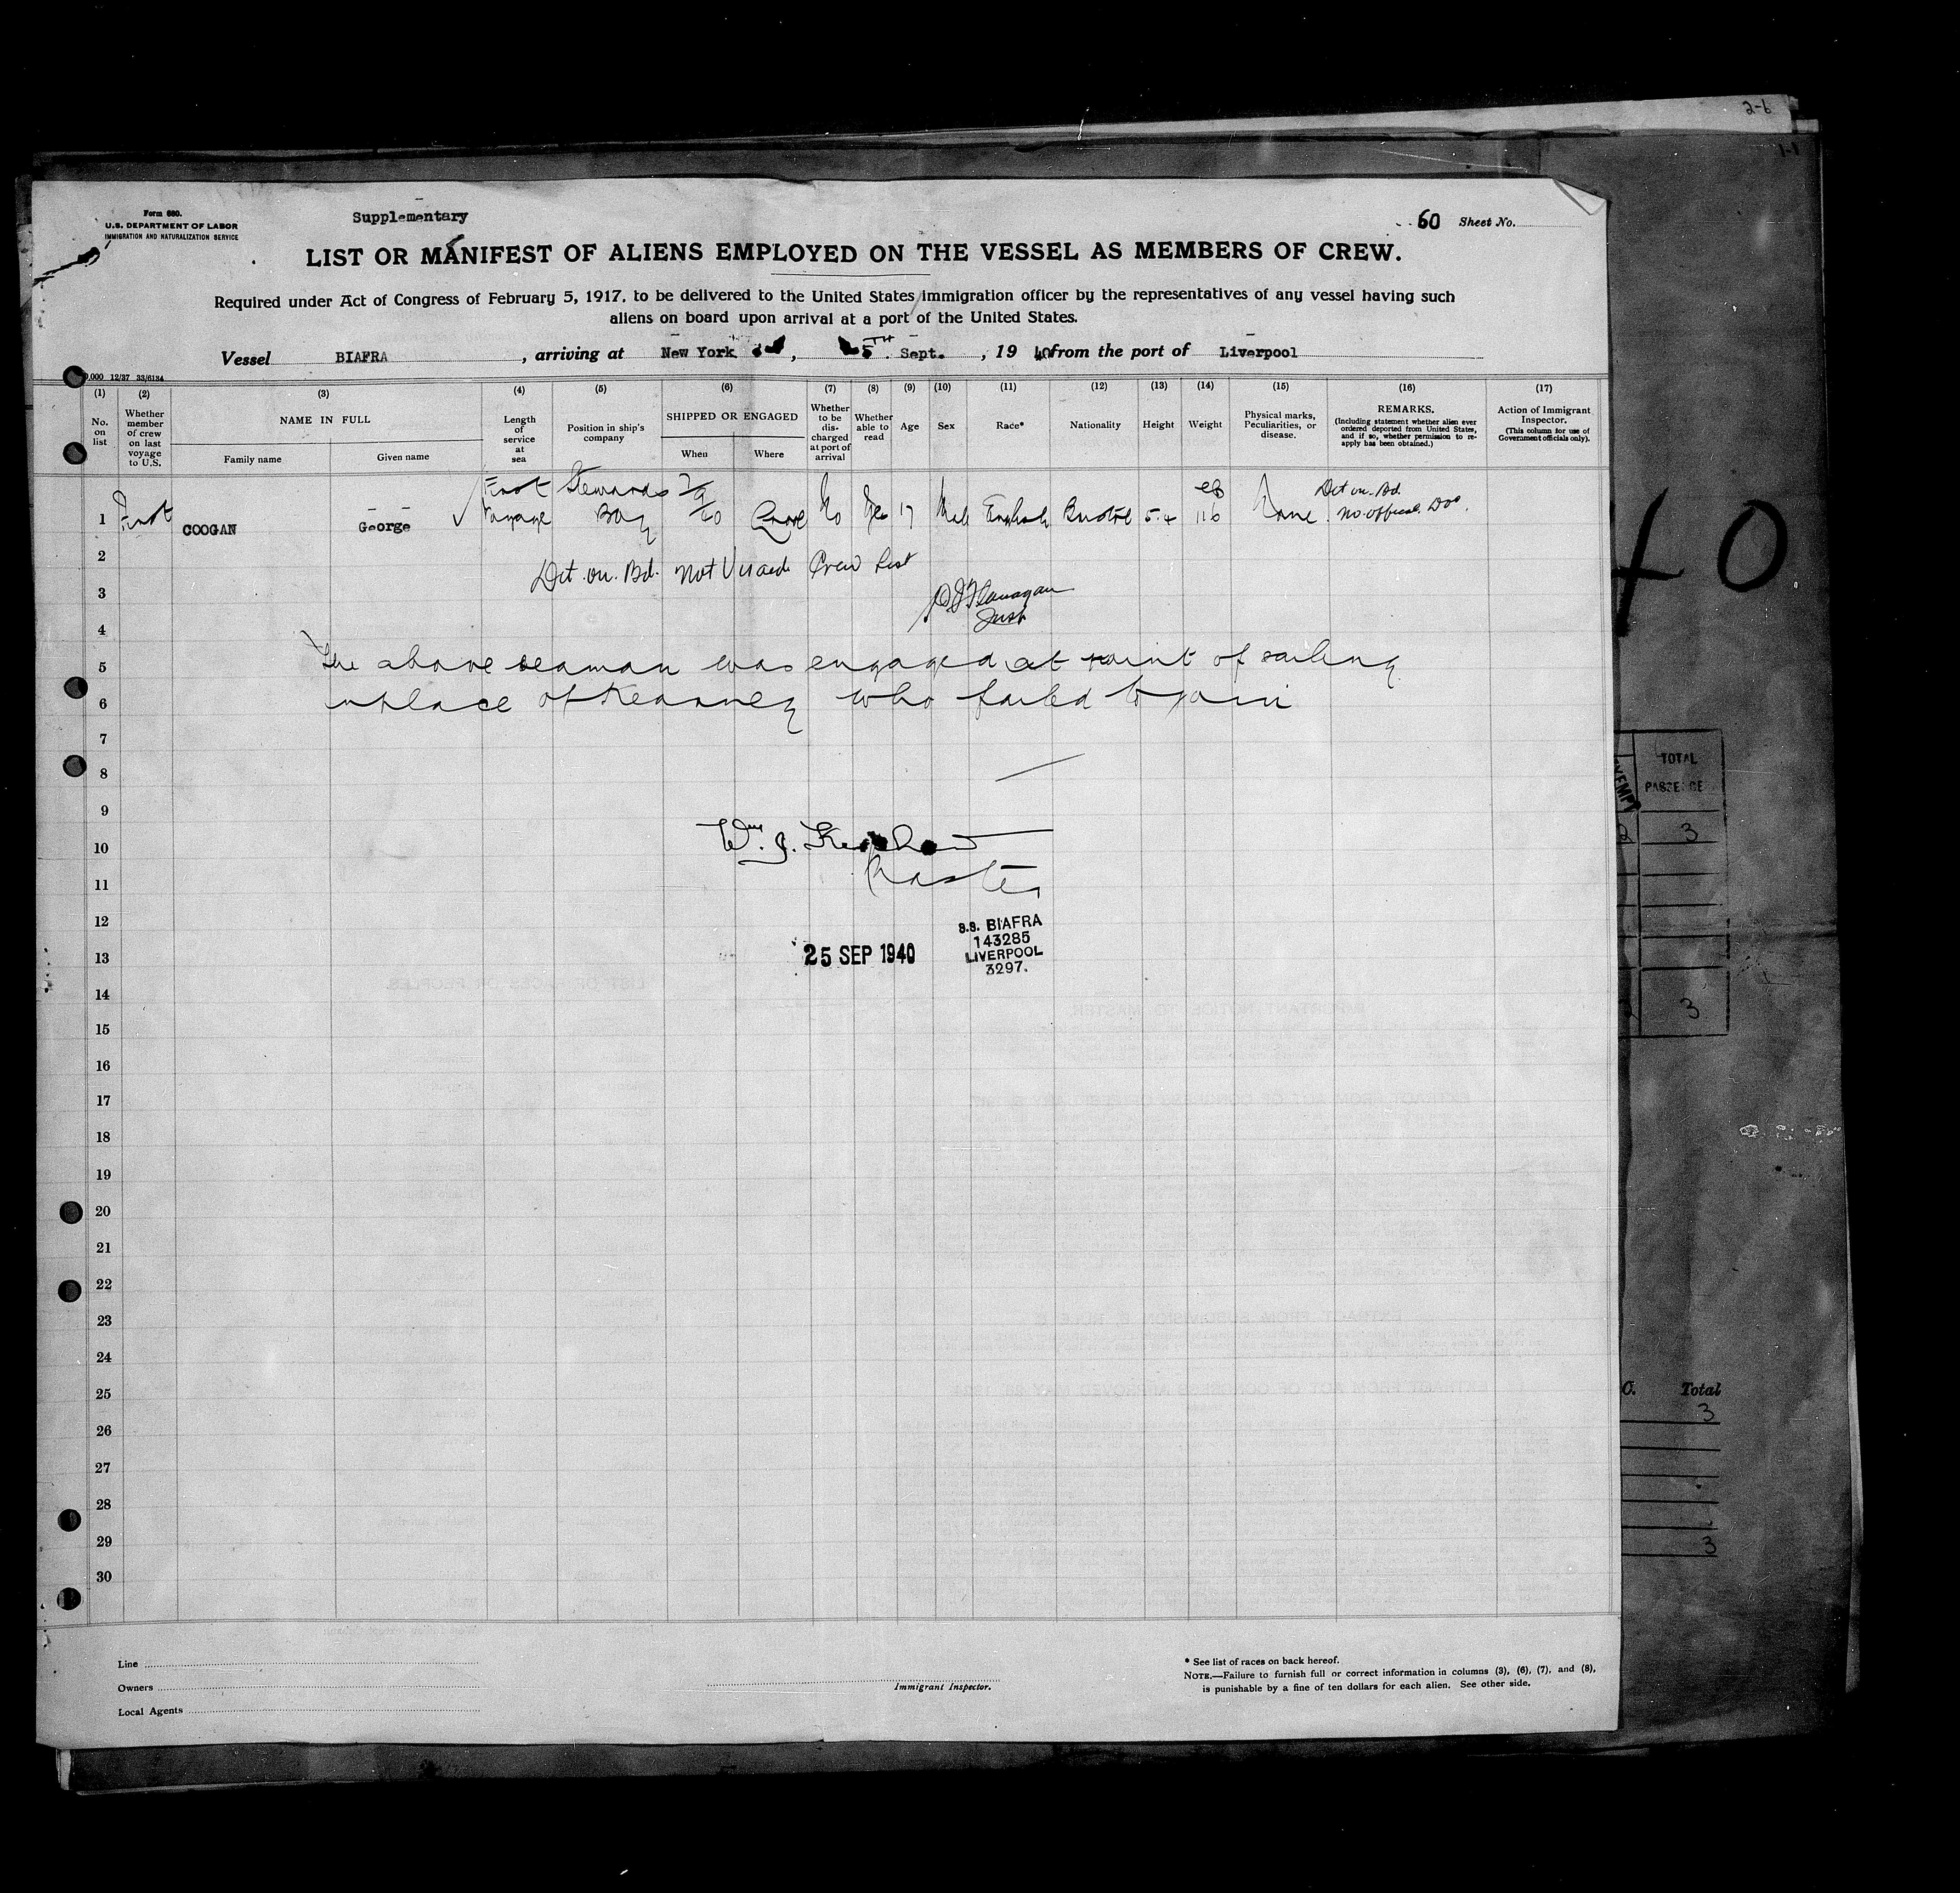 2-6
1-1
Form 680.
U.S. DEPARTMENT OF LABOR
IMMIGRATION AND NATURALIZATION SERVICE
Supplementary
60 Sheet No.
LIST OR MANIFEST OF ALIENS EMPLOYED ON THE VESSEL AS MEMBERS OF CREW.
Required under Act of Congress of February 5, 1917, to be delivered to the United States immigration officer by the representatives of any vessel having such
aliens on board upon arrival at a port of the United States.
Vessel BIAFRA, arriving at New York, 5TH Sept., 19 40 from the port of Liverpool
12/37 33/6184
(1) (2) (3) (4) (5) (6) (7) (8) (9) (10) (11) (12) (13) (14) (15) (16) (17)
No. on list
Whether member of crew on last voyage to U.S.
NAME IN FULL
Family name
Given name
Length of service at sea
Position in ship's company
SHIPPED OR ENGAGED
When
Where
Whether to be discharged at port of arrival
Whether able to read
Age
Sex
Race*
Nationality
Height
Weight
Physical marks, Peculiarities, or disease.
REMARKS.
(Including statement whether alien ever ordered deported from United States, and if so, whether permission to re-apply has been obtained.)
Action of Immigrant Inspector.
(This column for use of Government officials only).
1 First COOGAN George First Voyage Stewards Boy 7/9/40 No Yes 17 Male English British 5.4 116 None Det on Bd. No. Official Doc.
2 Det. on. Bd. Not Visaed Crew List
3
4
5 The above seaman was engaged at point of sailing
6 in place of Kearney who failed to join
7
8
9
10 Wm. J. Kershaw
11 Master
12
13
25 SEP 1940
S.S. BIAFRA
143285
LIVERPOOL
3297.
14
15
16
17
18
19
20
21
22
23
24
25
26
27
28
29
30
Line
Owners
Local Agents
Immigrant Inspector.
* See list of races on back hereof.
NOTE.—Failure to furnish full or correct information in columns (3), (6), (7), and (8),
is punishable by a fine of ten dollars for each alien. See other side.
40
TOTAL
3
3
Total
3
3